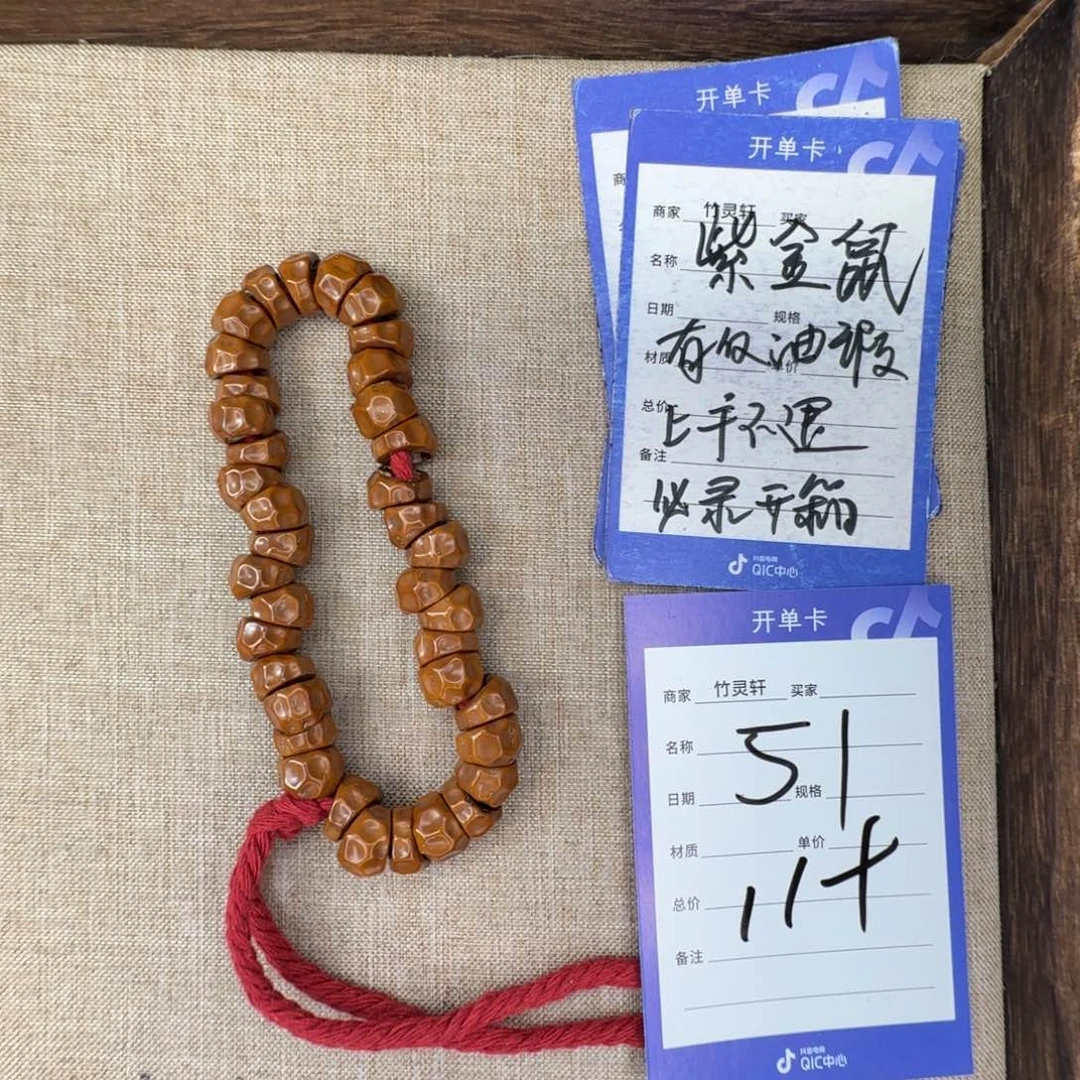 开单卡
商
开单卡
商家 竹灵轩 买家
名称 紫金鼠
日期 规格
材质 有仅油瑕 单价
总价 上手不退
备注
必录开箱
抖音电商
QIC中心
开单卡
商家 竹灵轩 买家
名称 51
日期 规格
材质 单价
总价 114
备注
抖音电商
QIC中心